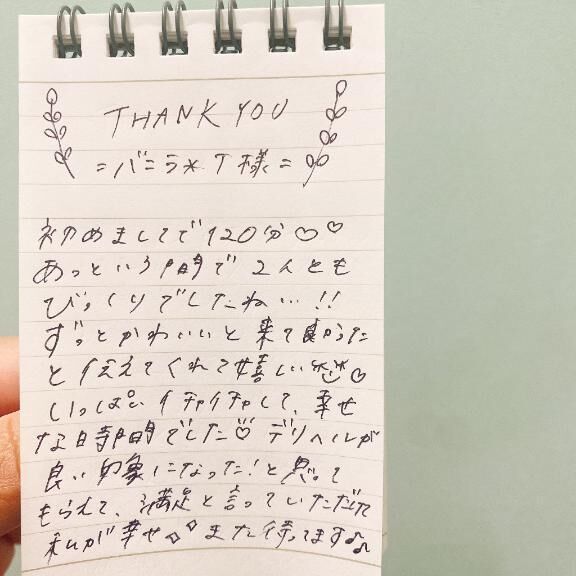 THANK YOU
=バニラ*T様=
初めましてで120分♡♡
あっという間で2人とも
びっくりでしたね…!!
ずっとかわいいと来て良かった
と伝えてくれて嬉しい♡
いっぱいイチャイチャして、幸せ
な時間でした♡デリヘルが
良い印象になった!と思って
もらえて、満足と言っていただけて
私が幸せ◇◇また待ってます♪♪